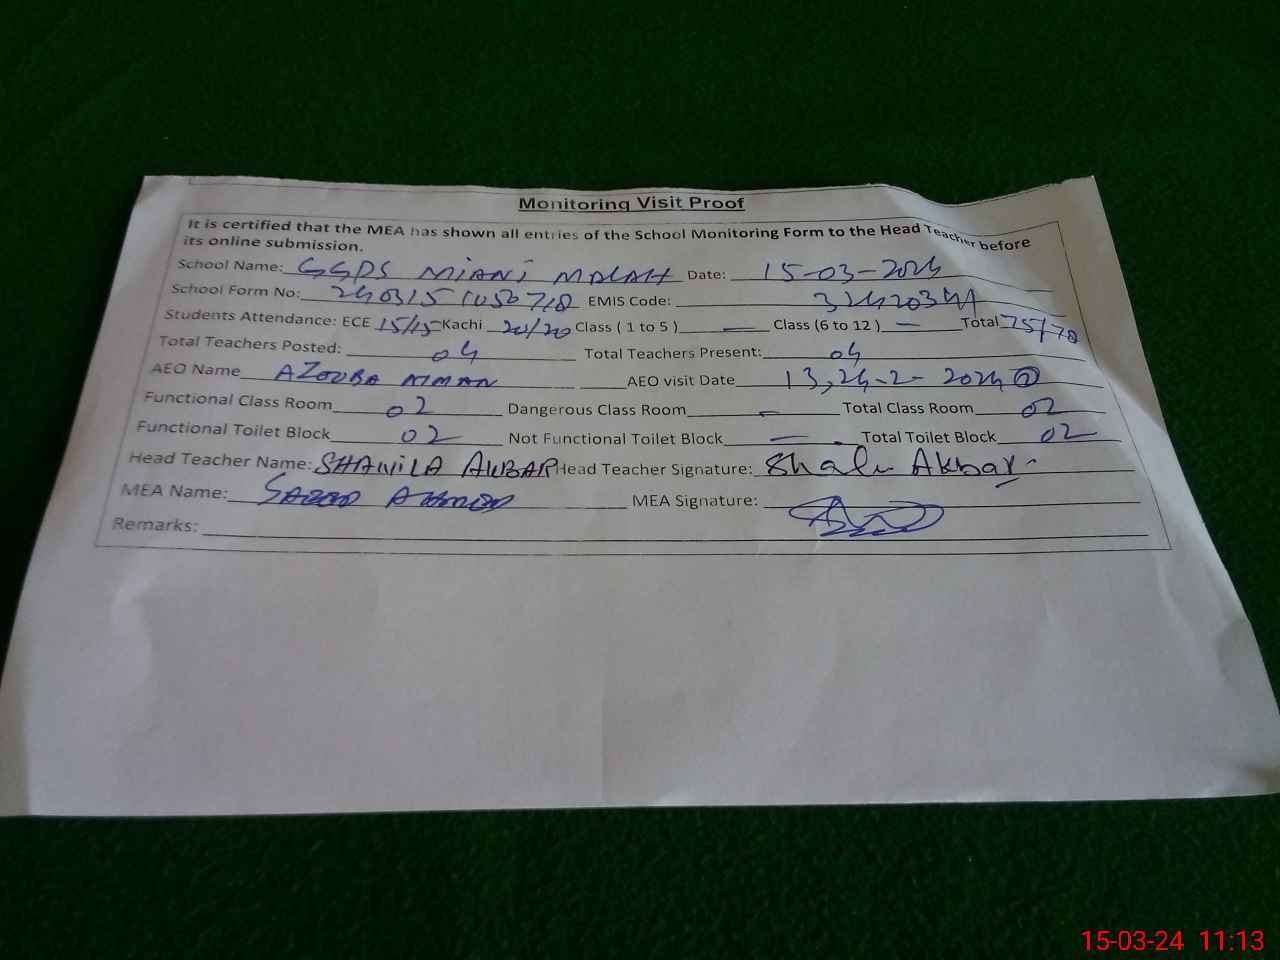 Monitoring Visit Proof
It is certified that the MEA has shown all entries of the School Monitoring Form to the Head Teacher before
its online submission.
School Name: GGPS MIANI MALAH Date: 15-03-2024
School Form No: EMIS Code: 32420341
Students Attendance: ECE 15/15 Kachi 20/20 Class ( 1 to 5 ) — Class (6 to 12 ) — Total 75/78
Total Teachers Posted: 04 Total Teachers Present: 04
AEO Name AZOOBA AIMAN AEO visit Date 13,24-2-2024
Functional Class Room 02 Dangerous Class Room - Total Class Room 02
Functional Toilet Block 02 Not Functional Toilet Block — Total Toilet Block 02
Head Teacher Name: SHAWILA AKBAR Head Teacher Signature: Akbar
MEA Name: MEA Signature:
Remarks:
15-03-24 11:13